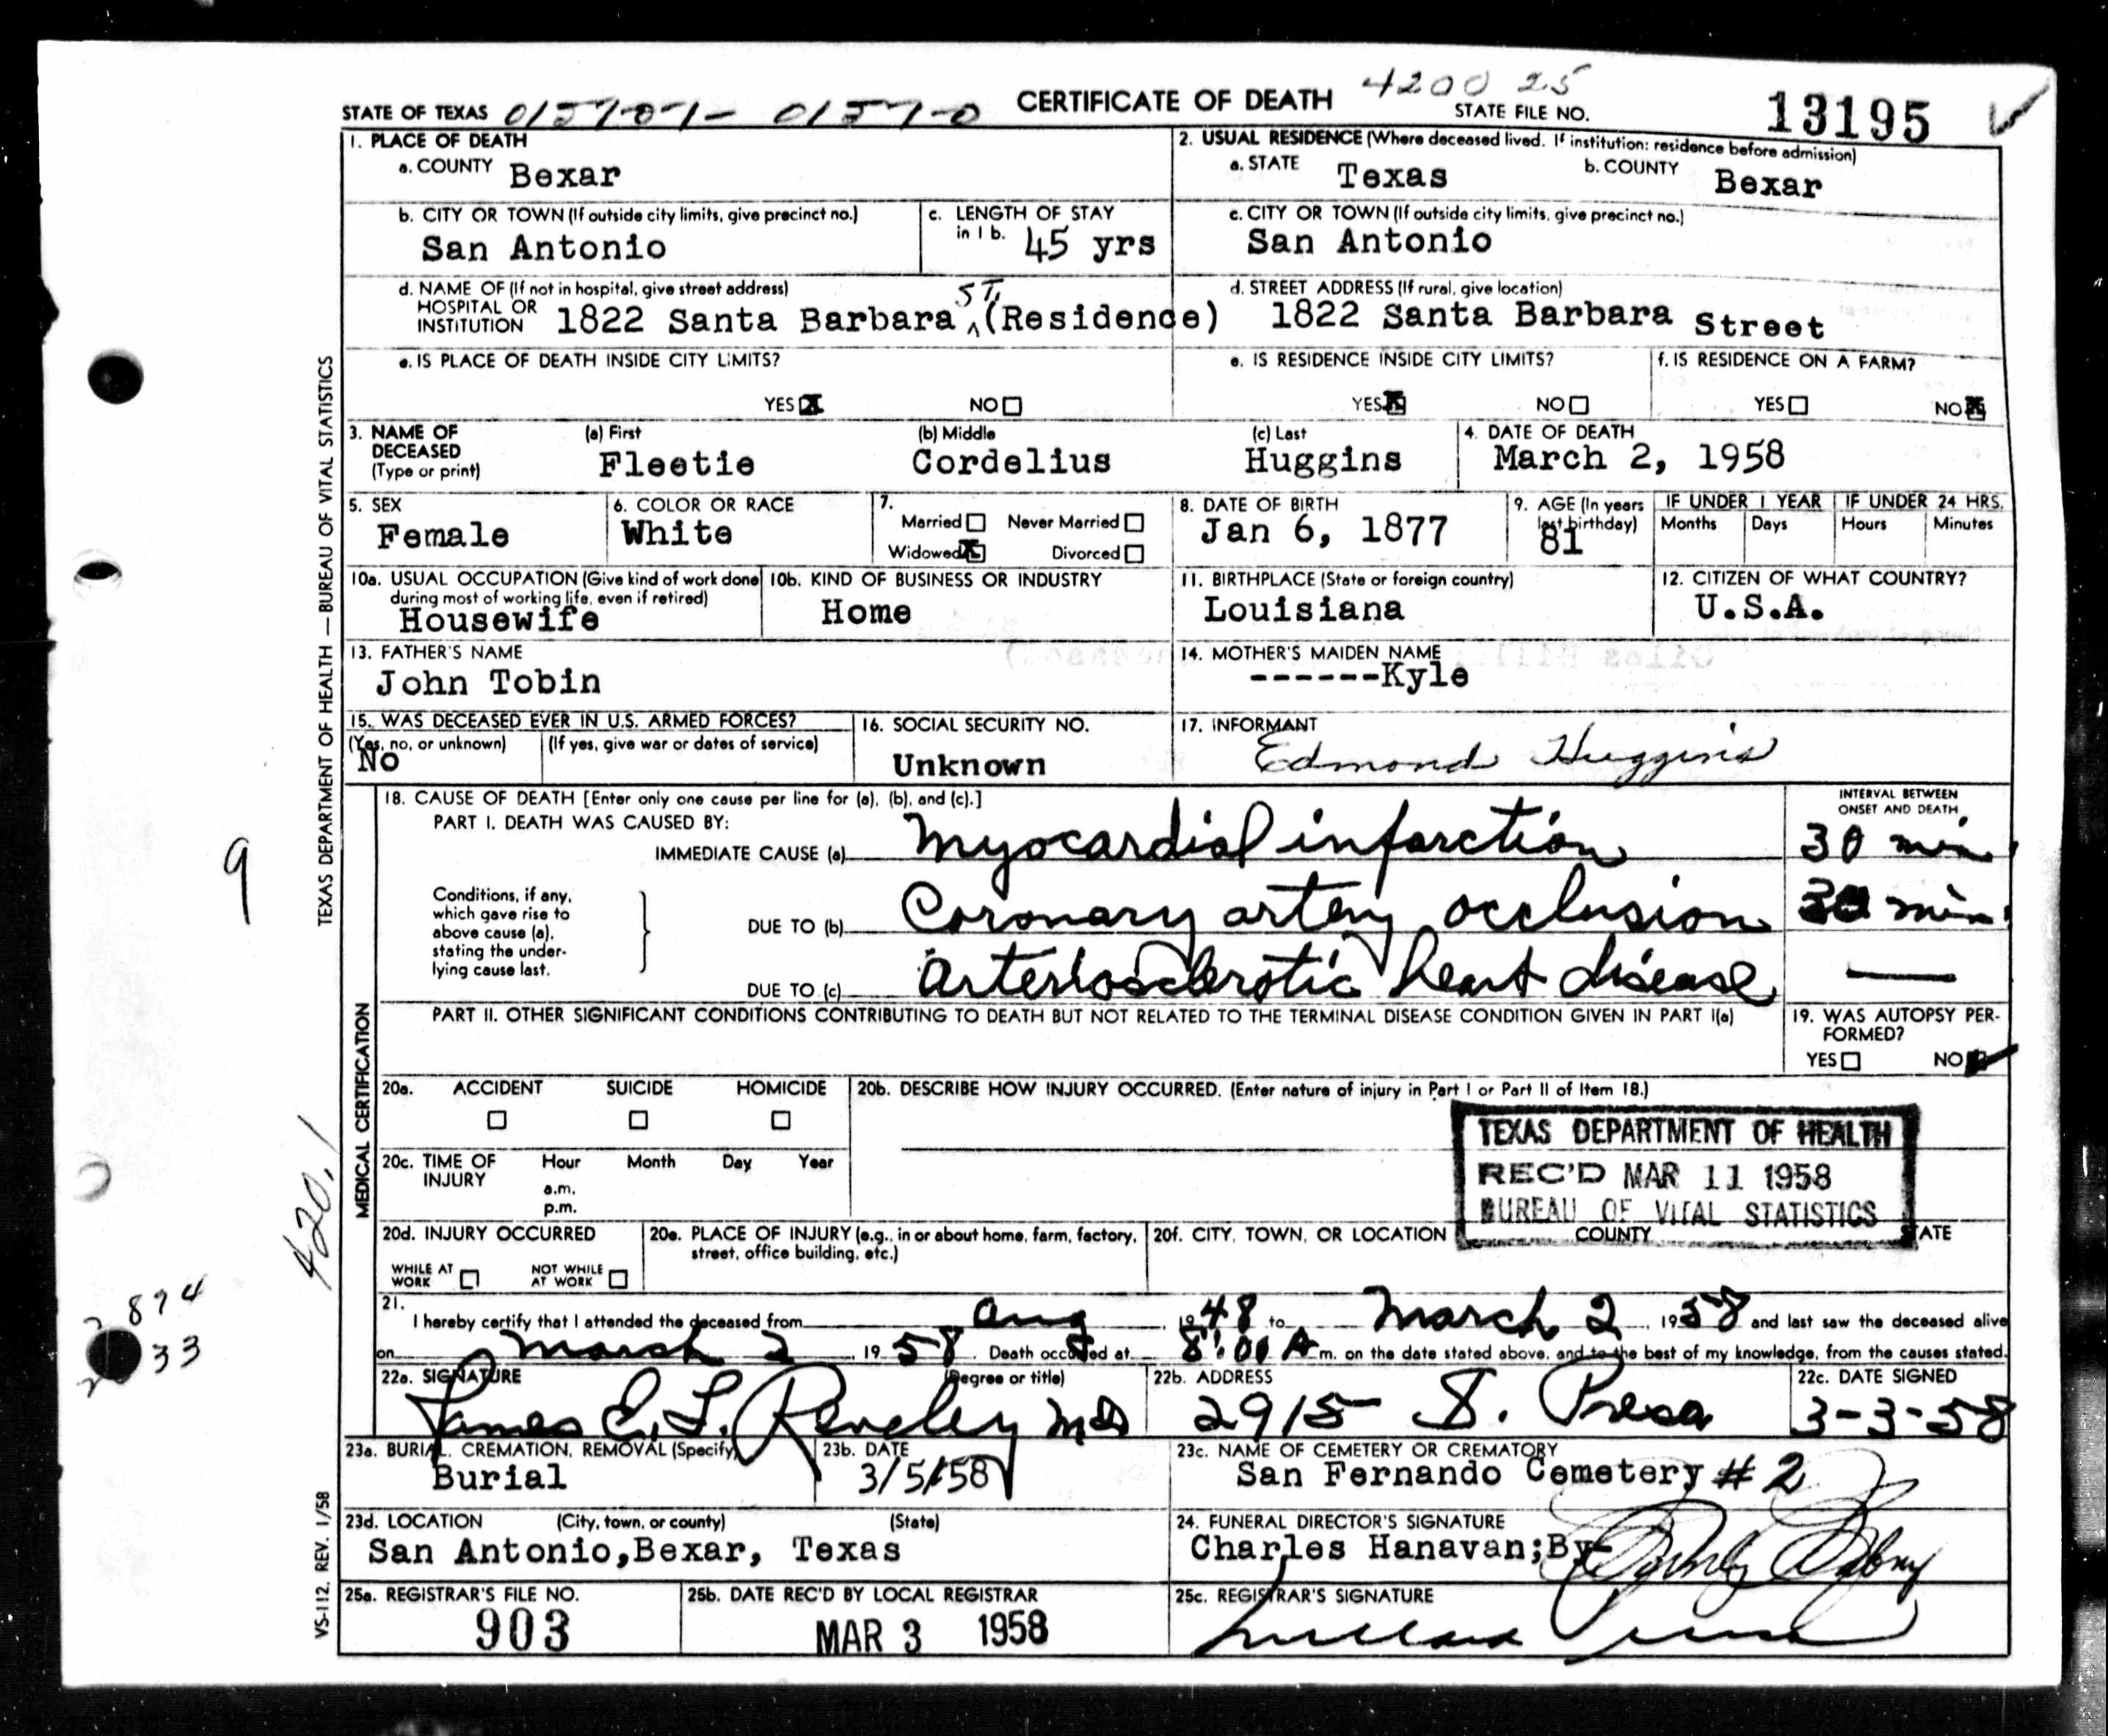 4200 25
STATE OF TEXAS 015707- 01570 CERTIFICATE OF DEATH STATE FILE NO. 13195
1. PLACE OF DEATH
a. COUNTY Bexar
2. USUAL RESIDENCE (Where deceased lived. If institution: residence before admission)
a. STATE Texas b. COUNTY Bexar
b. CITY OR TOWN (If outside city limits, give precinct no.)
San Antonio
c. LENGTH OF STAY
in 1 b. 45 yrs
c. CITY OR TOWN (If outside city limits, give precinct no.)
San Antonio
d. NAME OF (If not in hospital, give street address)
HOSPITAL OR
INSTITUTION 1822 Santa Barbara St. (Residence)
d. STREET ADDRESS (If rural, give location)
1822 Santa Barbara Street
e. IS PLACE OF DEATH INSIDE CITY LIMITS?
YES X NO
e. IS RESIDENCE INSIDE CITY LIMITS?
YES X NO
f. IS RESIDENCE ON A FARM?
YES NO X
3. NAME OF DECEASED (Type or print)
(a) First (b) Middle (c) Last
Fleetie Cordelius Huggins
4. DATE OF DEATH
March 2, 1958
5. SEX
Female
6. COLOR OR RACE
White
7.
Married Never Married
Widowed X Divorced
8. DATE OF BIRTH
Jan 6, 1877
9. AGE (In years last birthday)
81
IF UNDER 1 YEAR IF UNDER 24 HRS.
Months Days Hours Minutes
10a. USUAL OCCUPATION (Give kind of work done
during most of working life, even if retired)
Housewife
10b. KIND OF BUSINESS OR INDUSTRY
Home
11. BIRTHPLACE (State or foreign country)
Louisiana
12. CITIZEN OF WHAT COUNTRY?
U.S.A.
13. FATHER'S NAME
John Tobin
14. MOTHER'S MAIDEN NAME
------Kyle
15. WAS DECEASED EVER IN U.S. ARMED FORCES?
(Yes, no, or unknown) (If yes, give war or dates of service)
No
16. SOCIAL SECURITY NO.
Unknown
17. INFORMANT
Edmond Huggins
18. CAUSE OF DEATH [Enter only one cause per line for (a), (b), and (c).]
INTERVAL BETWEEN
ONSET AND DEATH
PART I. DEATH WAS CAUSED BY:
IMMEDIATE CAUSE (a) Myocardial infarction 30 min.
Conditions, if any,
which gave rise to
above cause (a),
stating the under-
lying cause last.
DUE TO (b) Coronary artery occlusion 30 min.
DUE TO (c) Arteriosclerotic heart disease —
PART II. OTHER SIGNIFICANT CONDITIONS CONTRIBUTING TO DEATH BUT NOT RELATED TO THE TERMINAL DISEASE CONDITION GIVEN IN PART I(a)
19. WAS AUTOPSY PER-
FORMED?
YES NO
20a. ACCIDENT SUICIDE HOMICIDE
20b. DESCRIBE HOW INJURY OCCURRED. (Enter nature of injury in Part I or Part II of Item 18.)
TEXAS DEPARTMENT OF HEALTH
REC'D MAR 11 1958
BUREAU OF VITAL STATISTICS
20c. TIME OF INJURY
Hour Month Day Year
a.m.
p.m.
20d. INJURY OCCURRED
WHILE AT WORK NOT WHILE AT WORK
20e. PLACE OF INJURY (e.g., in or about home, farm, factory,
street, office building, etc.)
20f. CITY, TOWN, OR LOCATION COUNTY STATE
21.
I hereby certify that I attended the deceased from Aug 1948 to March 2, 1958 and last saw the deceased alive
on March 2 1958. Death occurred at 8:00 A m. on the date stated above, and to the best of my knowledge, from the causes stated.
22a. SIGNATURE (Degree or title)
James E. L. Reveley MD
22b. ADDRESS
2915 S. Presa
22c. DATE SIGNED
3-3-58
23a. BURIAL, CREMATION, REMOVAL (Specify)
Burial
23b. DATE
3/5/58
23c. NAME OF CEMETERY OR CREMATORY
San Fernando Cemetery # 2
23d. LOCATION (City, town, or county) (State)
San Antonio, Bexar, Texas
24. FUNERAL DIRECTOR'S SIGNATURE
Charles Hanavan; By
25a. REGISTRAR'S FILE NO.
903
25b. DATE REC'D BY LOCAL REGISTRAR
MAR 3 1958
25c. REGISTRAR'S SIGNATURE
TEXAS DEPARTMENT OF HEALTH — BUREAU OF VITAL STATISTICS
MEDICAL CERTIFICATION
VS-112. REV. 1/58
9
420.1
874
33